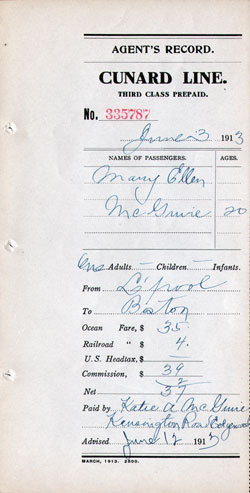 AGENT'S RECORD.
CUNARD LINE.
THIRD CLASS PREPAID.
No. 335787
June 3 1913
NAMES OF PASSENGERS. AGES.
Mary Ellen
McGuire 20
One Adults — Children — Infants.
From L'pool
To Boston
Ocean Fare, $ 35
Railroad " $ 4.
U.S. Headtax, $
Commission, $ 39
2
Net 37
Paid by Katie A McGuire
Kensington Road Edgewood
Advised June 12 1913
MARCH, 1913. 2500.